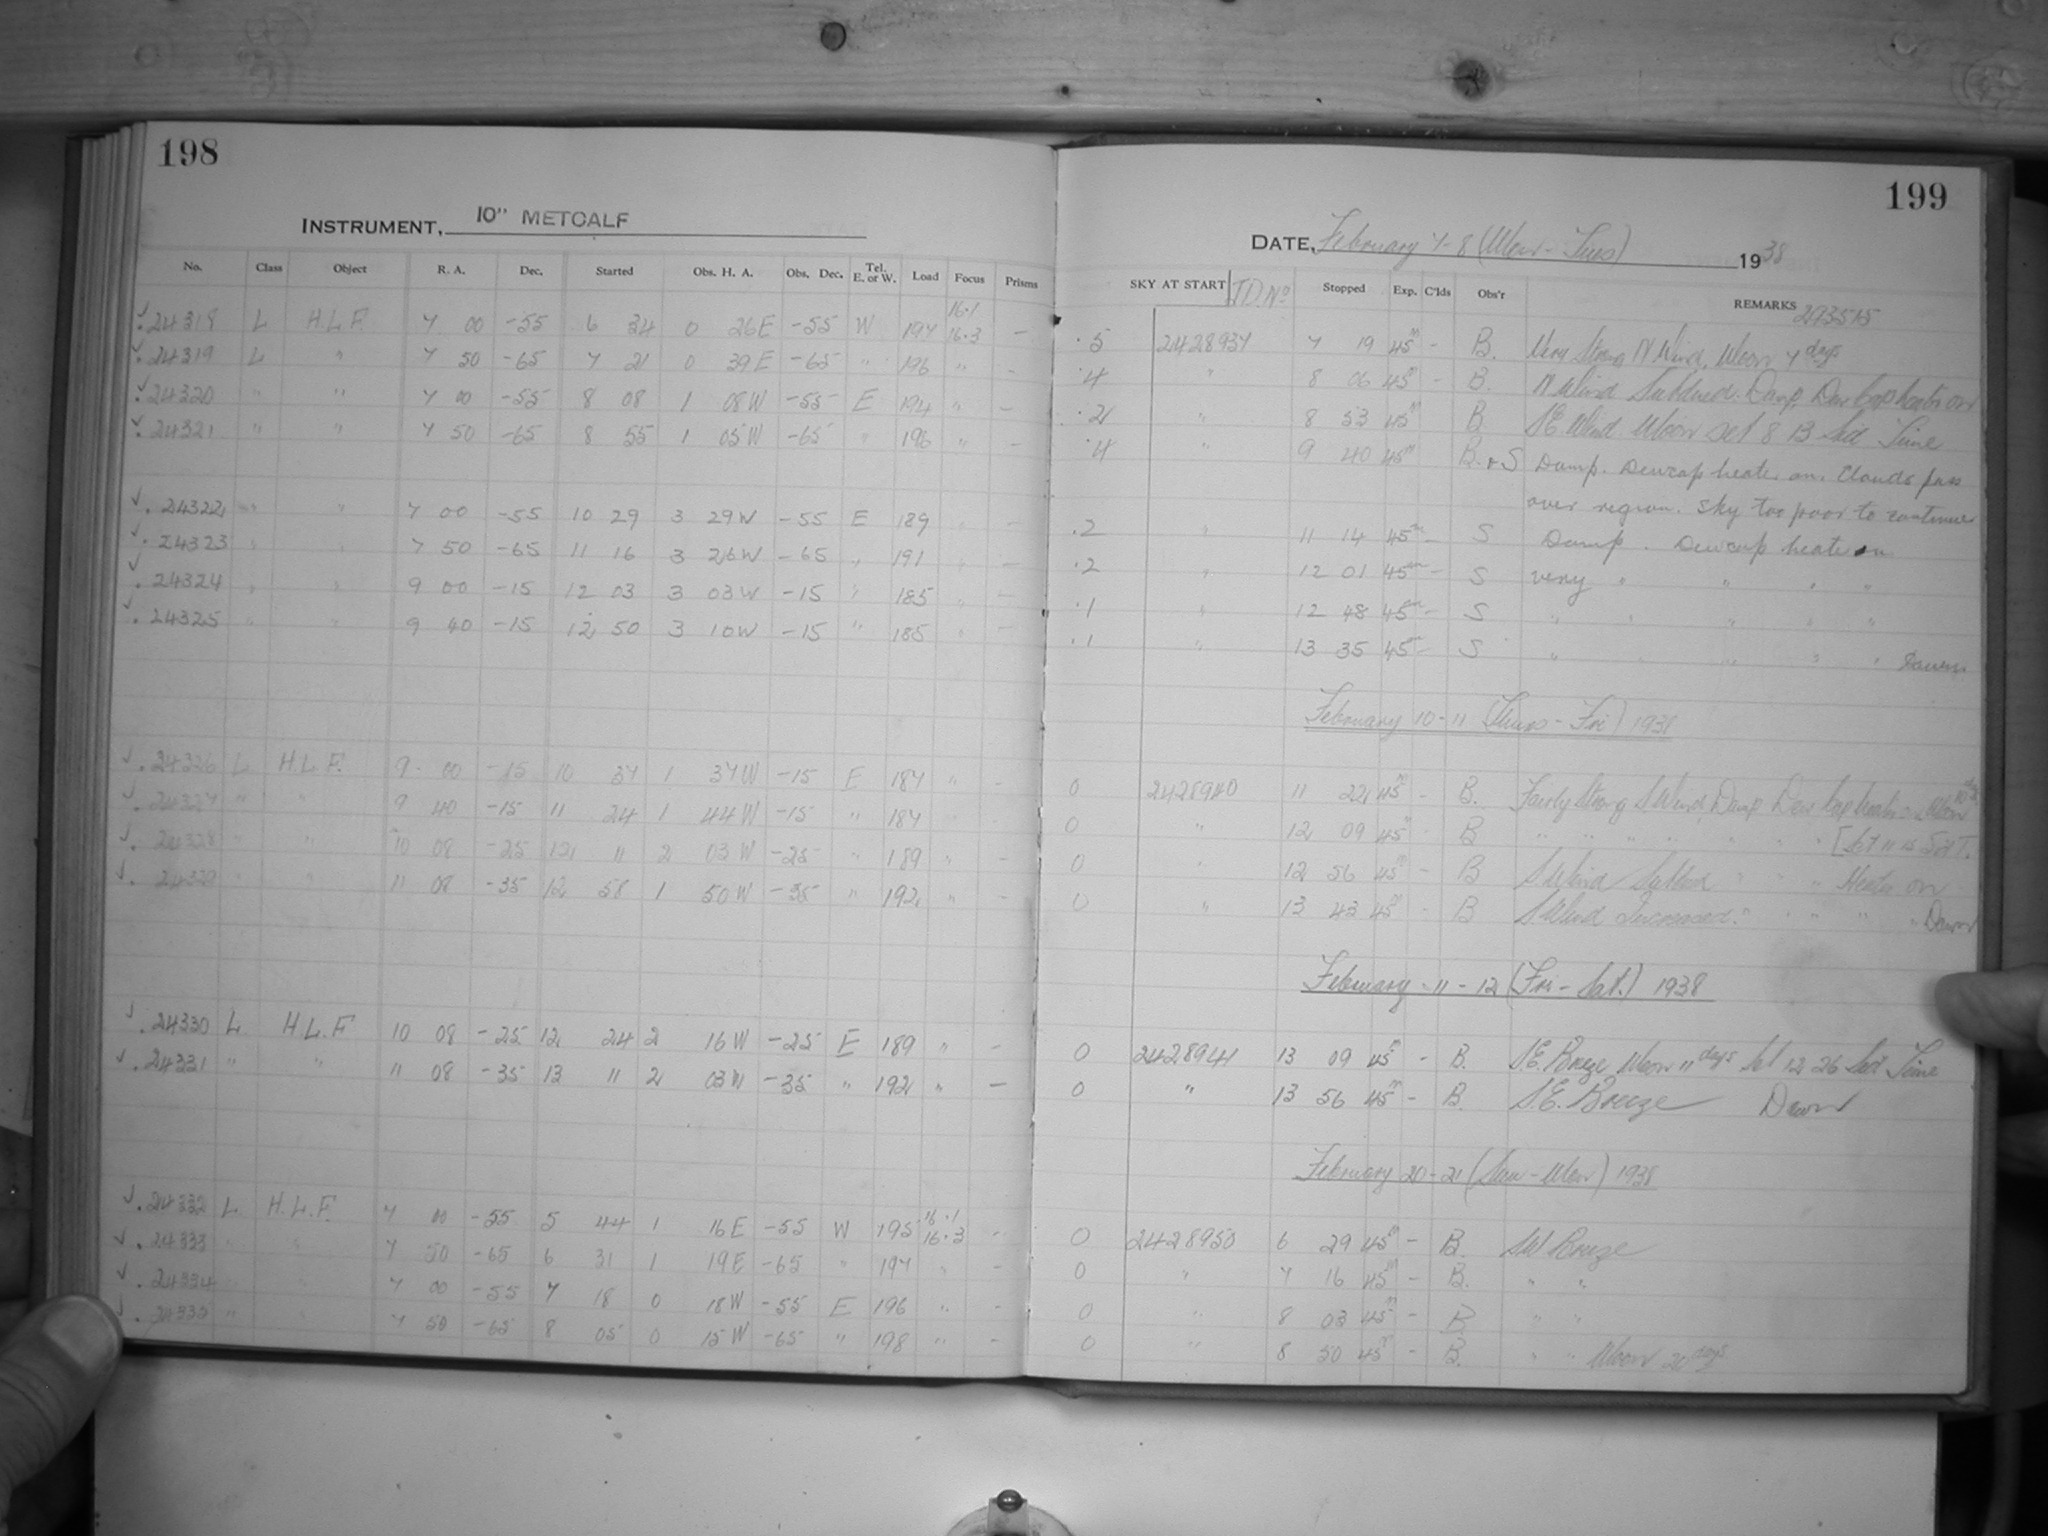 198
INSTRUMENT, 10" METCALF
No. Class Object R. A. Dec. Started Obs. H. A. Obs. Dec. Tel. E. or W. Load Focus Prisms
✓.24318 L H.L.F. 7 00 -55 6 34 0 26E -55 W 197 16.1 16.3 -
✓.24319 L " 7 50 -65 7 21 0 39E -65 " 196 " -
✓.24320 " " 7 00 -55 8 08 1 08W -55 E 194 " -
✓.24321 " " 7 50 -65 8 55 1 05W -65 " 196 " -
✓.24322 " " 7 00 -55 10 29 3 29W -55 E 189 " -
✓.24323 " " 7 50 -65 11 16 3 26W -65 " 191 " -
✓.24324 " " 9 00 -15 12 03 3 03W -15 " 185 " -
✓.24325 " " 9 40 -15 12 50 3 10W -15 " 185 " -
✓.24326 L H.L.F. 9 00 -15 10 37 1 37W -15 E 187 " -
✓.24327 " " 9 40 -15 11 24 1 44W -15 " 187 " -
✓.24328 " " 10 08 -25 12 11 2 03W -25 " 189 " -
✓.24329 " " 11 08 -35 12 58 1 50W -35 " 192 " -
✓.24330 L H.L.F 10 08 -25 12 24 2 16W -25 E 189 " -
✓.24331 " " 11 08 -35 13 11 2 03W -35 " 192 " -
✓.24332 L H.L.F. 7 00 -55 5 44 1 16E -55 W 195 16.1 16.3 -
✓.24333 " " 7 50 -65 6 31 1 19E -65 " 197 " -
✓.24334 " " 7 00 -55 7 18 0 18W -55 E 196 " -
✓.24335 " " 7 50 -65 8 05 0 15W -65 " 198 " -
199
DATE, February 7-8 (Mon - Tues) 1938
SKY AT START J.D. No Stopped Exp. C'lds Obs'r REMARKS
.5 2428937 7 19 45m - B. Very Strong N Wind, Moon 7 days
.4 " 8 06 45m - B. N Wind Subdued. Damp. Dew Cap heater on
.2 " 8 53 45m B SE Wind Moon set 8 13 Sid Time
.4 " 9 40 45m B. + S Damp. Dewcap heater on. Clouds pass
over region. Sky too poor to continue
.2 " 11 14 45m - S Damp. Dewcap heater on
.2 " 12 01 45m - S very " " " "
.1 " 12 48 45m - S " " " " "
.1 " 13 35 45m - S " " " " " Dawn
February 10-11 (Thurs - Fri) 1938
0 2428940 11 22 45m - B. Fairly Strong S Wind, Damp Dew Cap heater on Moon 10 days
0 " 12 09 45m - B " " " " " " " [Set 11 Sid T.
0 " 12 56 45m - B S Wind Subdued " " " Heater on
0 " 13 43 45m - B S Wind Increased. " " " " Dawn
February 11 - 12 (Fri - Sat.) 1938
0 2428941 13 09 45m - B. S.E. Breeze Moon 11 days Set 12 26 Sid Time
0 " 13 56 45m - B. S.E. Breeze Dawn
February 20-21 (Sun - Mon) 1938
0 2428950 6 29 45m - B. SW Breeze
0 " 7 16 45m - B. " "
0 " 8 03 45m - B " "
0 " 8 50 45m - B. " " Moon 20 days